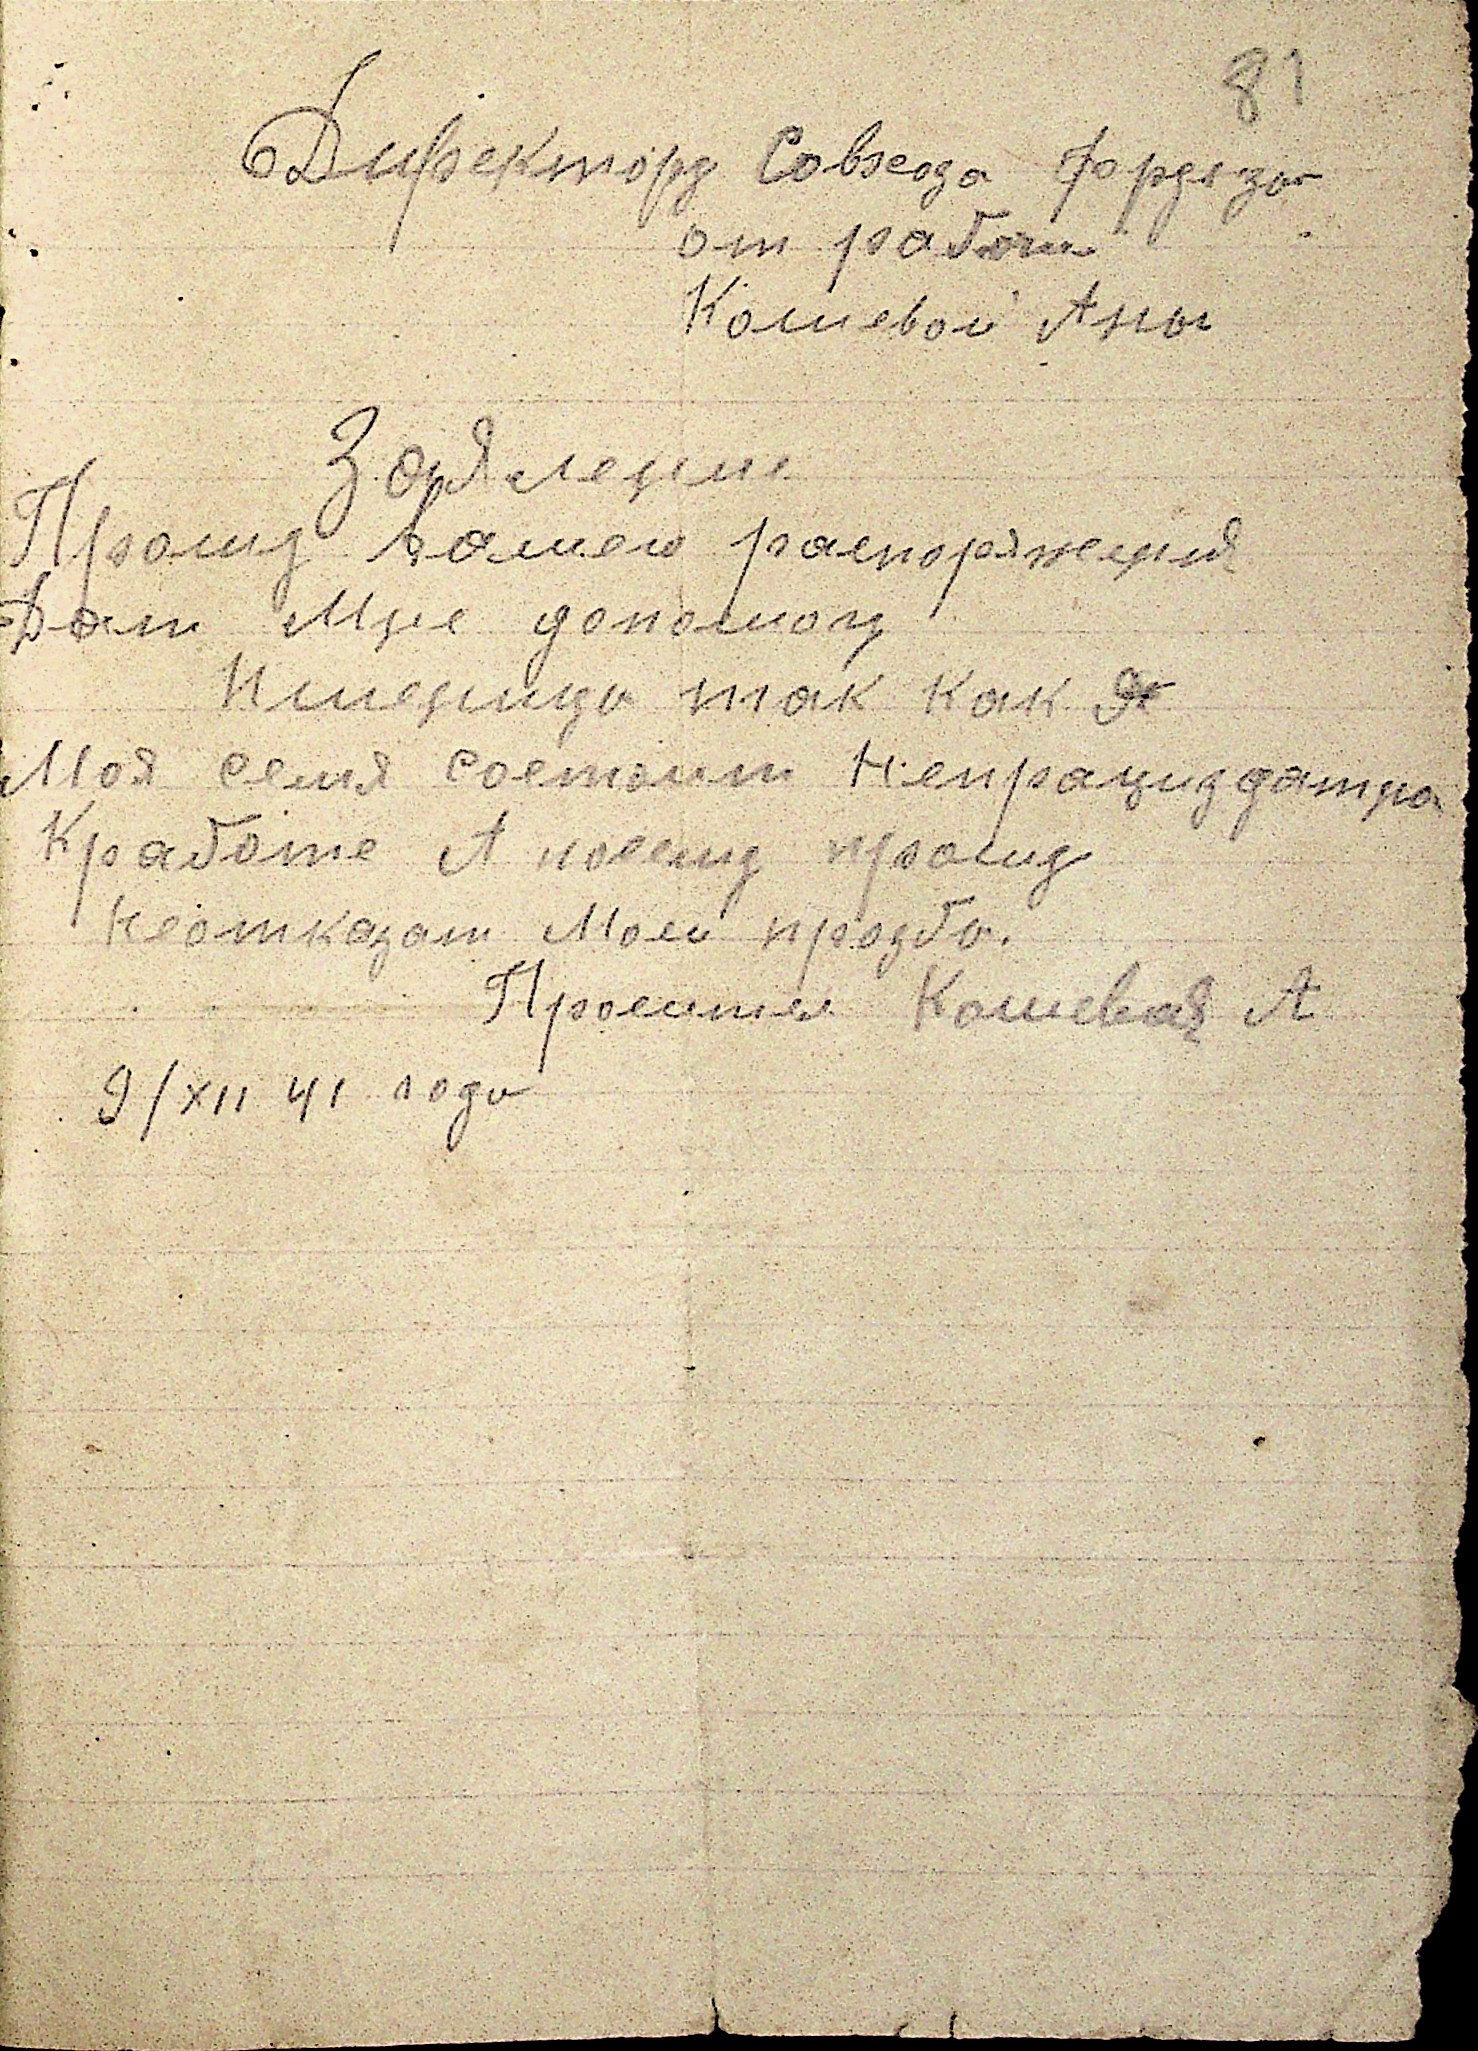 81
Директору Совхоза Фрунза
от рабочи
Кошевой Аны
Заявление
Прошу Вашего распоряжения
Дати Мне допомогу
Пшеница так как
Моя семя состоит
Кработе А посему прошу
Неотказат Моей прозба.
Проситель Кошевая А
9/XII 41 года